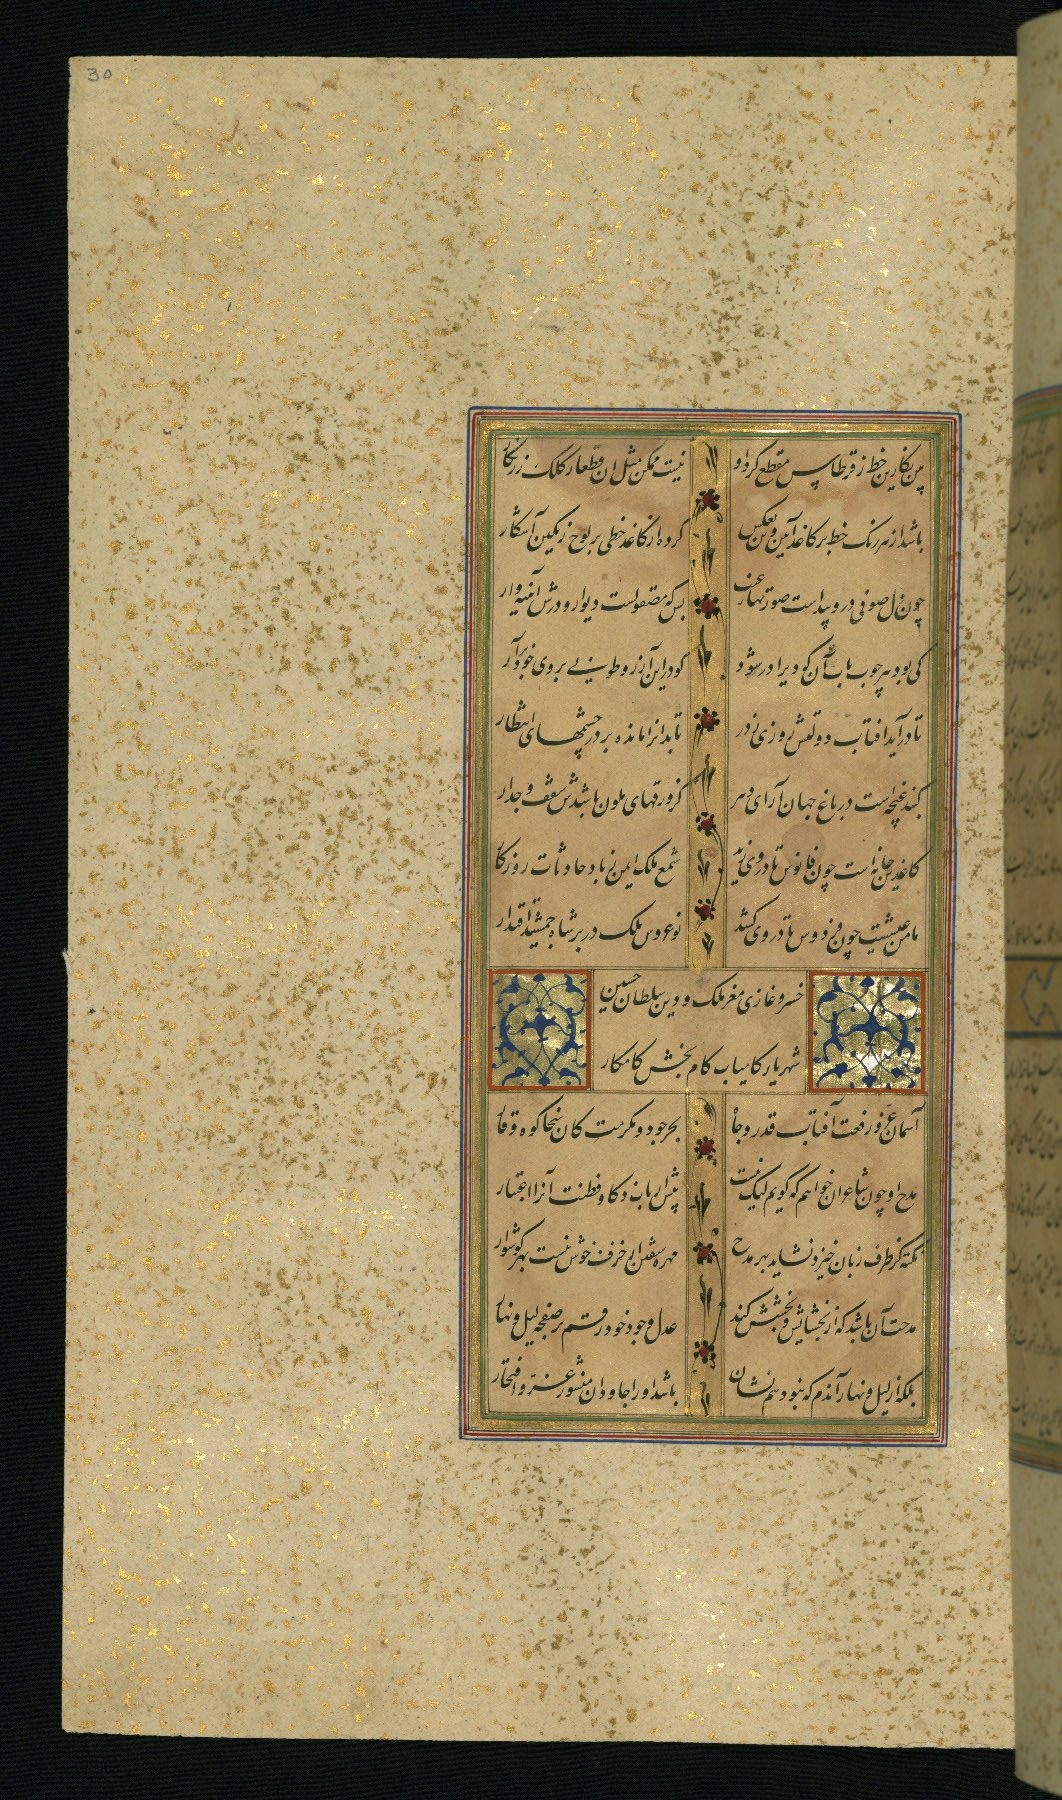 30
بین نگارین خط ز قرطاس مقطع کرد و او نیست ممکن مثل آن قطعا ز کلک زرنگار
باشد از هر رنگ خط بر کاغذ آیین و بعکس کرده از کاغذ خطی بر لوح رنگین آشکار
چون دل صوفی درو پیداست صورتهای غیب بس که مصقولست دیوار و درش آیینه وار
کی بود هر چوب باب آن کو ویرا در شود کو در این آرزو طوبی بروی خود برآر
تا درآید آفتاب دولتش روزی ز در تابدانرا مانده بر در چشمهای انتظار
گنبد غنچه است در باغ جهان آرای دهر کز ورقهای ملون باشدش سقف و جدار
کاغذین خانه است چون فانوس تا در وی زید شمع ملک ایمن ز باد حادثات روزگار
مامن عیشیست چون فردوس تا در وی کشد نوعروس ملک در بر شاه جمشید اقتدار
خسرو غازی معز ملک و دین سلطان حسین
شهریار کامیاب کام بخش کامکار
آسمان عز و رفعت آفتاب قدر و جاه بحر جود و مکرمت کان سخا کوه وقار
مدح او چون شاعران خواهم که گویم لیک نیست پیش ارباب ذکا و فطنت آنرا اعتبار
نکته کز طرف زبان خیزد نشاید بهر مدح مهره سفالی خزف خوش نیست بهر گوشوار
مدحت آن باشد که از بخشایش و بخشش کند عدل وجود خود رقم بر صفحه لیل و نهار
بلکه از لیل و نهار آندم که نبود هم نشان باشد او را جاودان منشور عز و افتخار